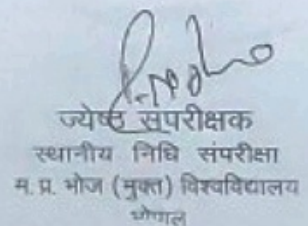 ज्येष्ठ सपरीक्षक
स्थानीय निधि संपरीक्षा
म. प्र. भोज (मुक्त) विश्वविद्यालय
भोपाल